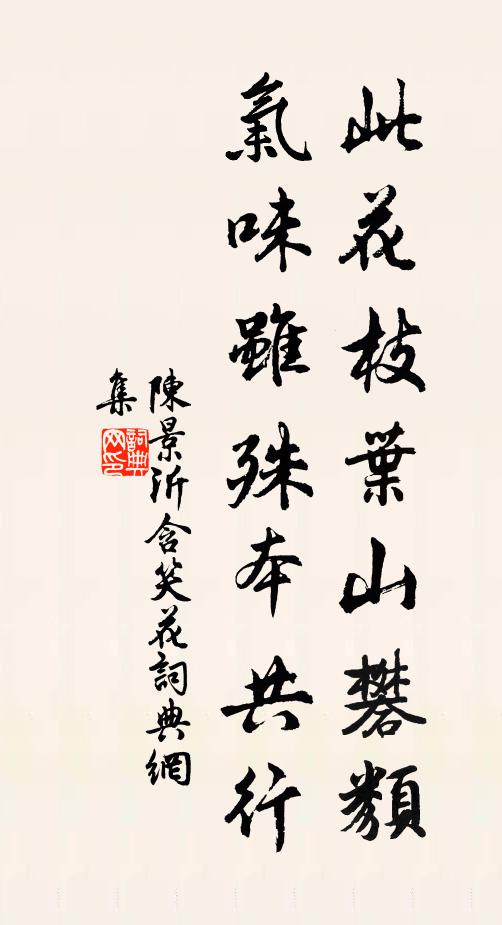 此花枝葉山礬類
氣味雖殊本共行
陳景沂含笑花詞典網
集
詞典
网印